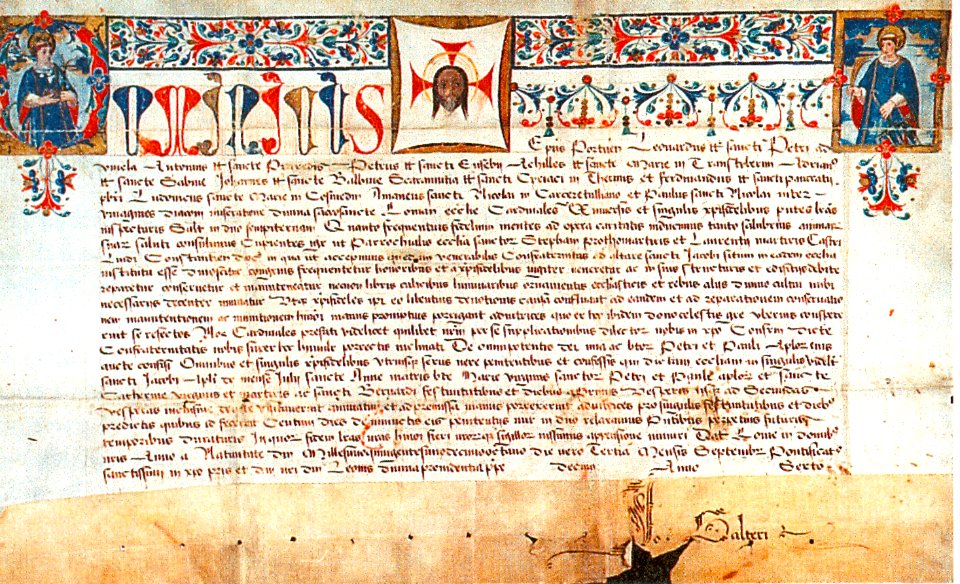 Dominicus
Epus Portuen Leonardus tt sancti Petri ad
vincula Antonius tt sancte Praxedis Petrus tt sancti Eusebij Achilles tt sancte Marie in Transtiberim Adrianus
tt sancte Sabine Johannes tt sancte Balbine Scaramutia tt sancti Cyriaci in Thermis et ferdinandus tt sancti pancratij
pbri Ludovicus sancte Marie in Cosmedin Amaneus sancti Nicolai in Carcere et Paulus sancti Nicolai inter
ymagines Diaconi miseratione divina sacrosancte Roman ecclie Cardinales Universis et singulis xpifidelibus pntes lras
inspecturis Salt in dno sempiternam Quanto frequentius fidelium mentes ad opera caritatis inducimus tanto salubrius animar
suar saluti consulimus Cupientes igr ut Parrochialis ecclia sanctor Stephani prothomartiris et Laurentij martiris Castri
Constantien dioc in qua ut accepimus venerabilis Confraternitas ad altare sancti Jacobi situm in eadem ecclia
instituta esse dinoscatur congruis frequentetur honoribus et a xpifidelibus iugiter veneretur ac in suis structuris et edificijs debite
reparetur conservetur et manuteneatur necnon libris calicibus luminaribus ornamentis ecclesiasticis et rebus alijs divino cultui inibi
necessarijs decenter muniatur Utqz xpifideles ipi eo libentius devotionis causa confluant ad eandem et ad reparationem conservatio
nem manutentionem ac munitionem hmoi manus promptius porrigant adiutrices quo ex hoc ibidem dono celestis gre uberius conspexe
rint se refectos Nos Cardinales prefati videlicet quilibet nrm per se supplicationibus dilector nobis in xpo Confrm dicte
Confraternitatis nobis super hoc humiliter porrectis inclinati De omnipotentis dei mia ac btor Petri et Pauli Aplor eius
aucte confisi Omnibus et singulis xpifidelibus utriusqz sexus vere penitentibus et confessis qui dictam eccliam in singulis videlt
sancti Jacobi Apli de mense Julij sancte Anne matris bte Marie virginis sanctor Petri et Pauli aplor et sancte
Catherine virginis et martiris ac sancti Bernardi festivitatibus et diebus a Primis Vesperis usqz ad Secundas
vesperas inclusive devote visitaverint annuatim et ad premissa manus porrexerint adiutrices pro singulis festivitatibus et dieb
predictis quibus id fecerint Centum dies de iniunctis eis penitentijs misr in dno relaxamus Pntibus perpetuis futuris
temporibus duraturis In quor fidem lras nras hmoi fieri nrorqz sigillor iussimus appensione muniri Dat Rome in domib
nris Anno a Nativitate dni Millesimoquingentesimodecimooctavo die vero Tertia Mensis Septembr Pontificat
sanctissimi in xpo pris et dni nri dni Leonis divina providentia ppe decimi Anno Sexto
Jo. Salteri